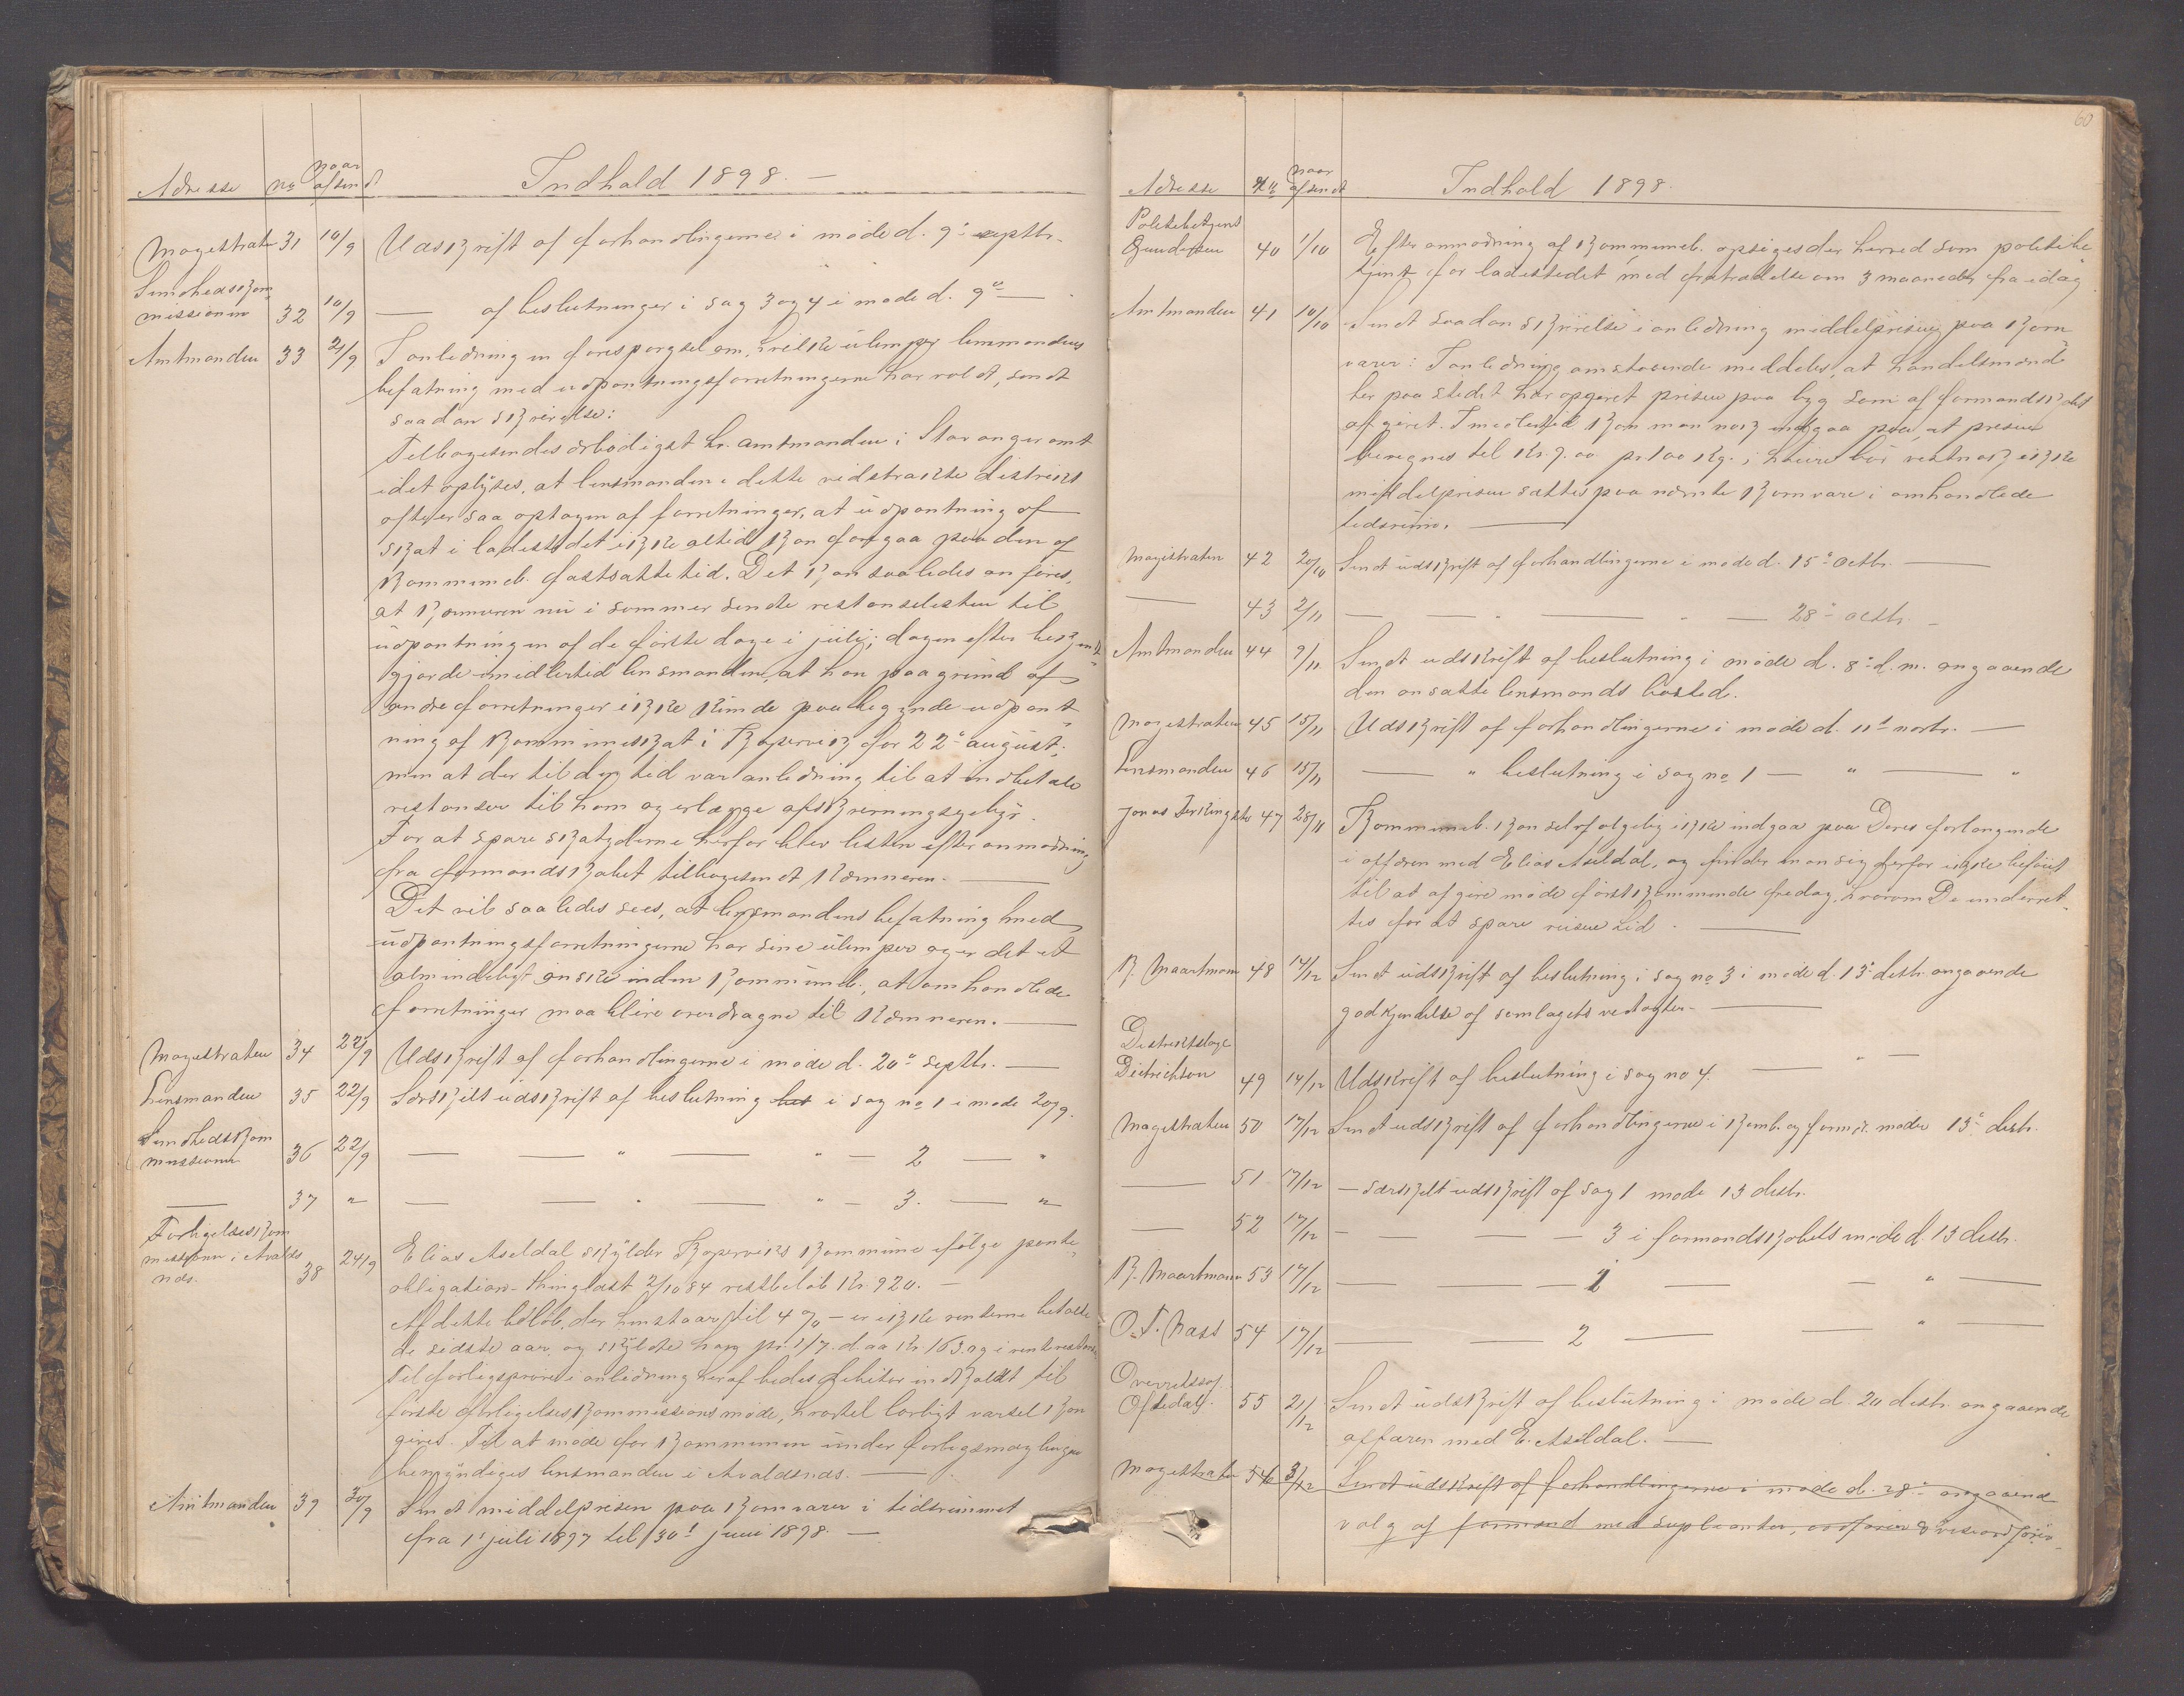 Adresse no naar afsendt Indhald 1898. —
Magistraten 31 10/9 Udskrift af forhandlingerne i møde d. 9de septbr.
Sundhedskom
missionen 32 10/9 — af beslutninger i sag 3 og 4 i møde d. 9de —
Amtmanden 33 21/9 I anledning en forespørgsel om, hvilke ulemper lensmandens
befatning med udpantningsforretningerne har voldt, sendt
saadan skrivelse:
Tilbagesendes ærbødigst hr. amtmanden i Stavanger amt
idet oplyses, at lensmanden i dette vidstrakte distrikt
ofte er saa optagen af forretninger, at udpantning af
skat i ladestedet ikke altid kan foregaa paa den af
kommuneb. fastsatte tid. Det kan saaledes anføres,
at kæmneren nu i sommer sendte restanselisten til
udpantningen af de første dage i juli; dagen efter bekjendt-
gjorde imidlertid lensmanden, at han paa grund af
andre forretninger ikke kunde paabegynde udpant-
ning af kommuneskat i Kopervik før 22de august;
men at der til den tid var anledning til at indbetale
restanser til ham og erlægge afskrivningsgebyr.
For at spare skatyderne herfor blev listen efter anmodning
fra formandskabet tilbagesendt kæmneren. —
Det vil saaledes sees, at lensmandens befatning med
udpantningsforretningerne har sine ulemper og er det et
almindeligt ønske inden kommuneb., at omhandlede
forretninger maa blive overdragne til kæmneren. —
Magistraten 34 22/9 Udskrift af forhandlingerne i møde d. 20de septbr. —
Lensmanden 35 22/9 Særskilt udskrift af beslutning i sag no 1 i møde 20/9.
Sundhedskom
missionen 36 22/9 — — " — " — 2 — "
— 37 " — — " — " — 3. — "
Forligelseskom
missionen i Avalds
nes. 38 24/9 Elias Aseldal skylder Koperviks kommune ifølge pante-
obligation thinglæst 2/10 84 restbeløb Kr. 920. —
Af dette beløb, der henstaar til 4 % – er ikke renterne betalt
de sidste aar, og skyldte han pr. 1/7. d. aa Kr. 163.09 i renterestance
Til forligsprøve i anledning heraf bedes debitor indkaldt til
første forligelseskommissionsmøde, hvortil lovligt varsel kan
gives. Til at møde for kommunen under forligsmæglingen
bemyndiges lensmanden i Avaldsnes. —
Amtmanden 39 30/9 Sendt middelprisen paa kornvarer i tidsrummet
fra 1' juli 1897 til 30' juni 1898. —
60
Adresse No naar afsendt Indhold 1898.
Politibetjent
Gundersen 40 1/10 Efter anmodning af kommuneb. opsiges der herved som politibe-
tjent for ladestedet med fratrædelse om 3 maaneder fra idag
Amtmanden 41 10/10 Sendt saadan skrivelse i anledning middelprisen paa korn
varer: I anledning omstaaende meddeles, at handelsmænd
her paa stedet har opgivet prisen paa byg som af formandskabet
afgivet. Imidlertid kan man nok indgaa paa, at prisen
beregnes til Kr. 9.00 pr. 100 Kg.; høiere bør vistnok ikke
middelprisen sættes paa nævnte kornvare i omhandlede
tidsrum. —
Magistraten 42 20/10 Sendt udskrift af forhandlingerne i møde d. 15de octbr. —
— 43 2/11 — " — " — 28de octbr. —
Amtmanden 44 9/11 Sendt udskrift af beslutning i møde d. 8de d. m. angaaende
den ansatte lensmands bosted.
Magistraten 45 15/11 Udskrift af forhandlingerne i møde d. 11te novbr. —
Lensmanden 46 15/11 — " beslutning i sag no 1 — " — "
Jonas 47 28/11 Kommuneb. kan selvfølgelig ikke indgaa paa Deres forlangende
i affæren med Elias Aseldal, og finder man sig derfor ikke beføiet
til at afgive møde førstkommende fredag, hvorom De underret-
tes for at spare reisen hid. —
R. Maartmann 48 14/12 Sendt udskrift af beslutning i sag no 3 i møde d. 13de decbr. angaaende
godkjendelse af samlagets vedtægter. —
Distriktslæge
Dietrichson 49 14/12 Udskrift af beslutning i sag no 4. — " —
Magistraten 50 17/12 Sendt udskrift af forhandlingerne i komb. og formsk. møder 13de decbr.
— 51 17/12 — særskilt udskrift af sag 1 møde 13 decbr.
— 52 17/12 — — — 3 i formandskabets møde d. 13 decbr.
R. Maartmann 53 17/12 — — 1 — " —
O. T. Næss 54 17/12 — — 2 — — " —
Overretssag.
Oftedal 55 21/12 Sendt udskrift af beslutning i møde d. 20 decbr. angaaende
affæren med E. Aseldal. —
Magistraten 56 3/12 Sendt udskrift af forhandlingerne i møde d. 28de angaaende
valg af formænd med supleanter, ordfører & viseordfører.